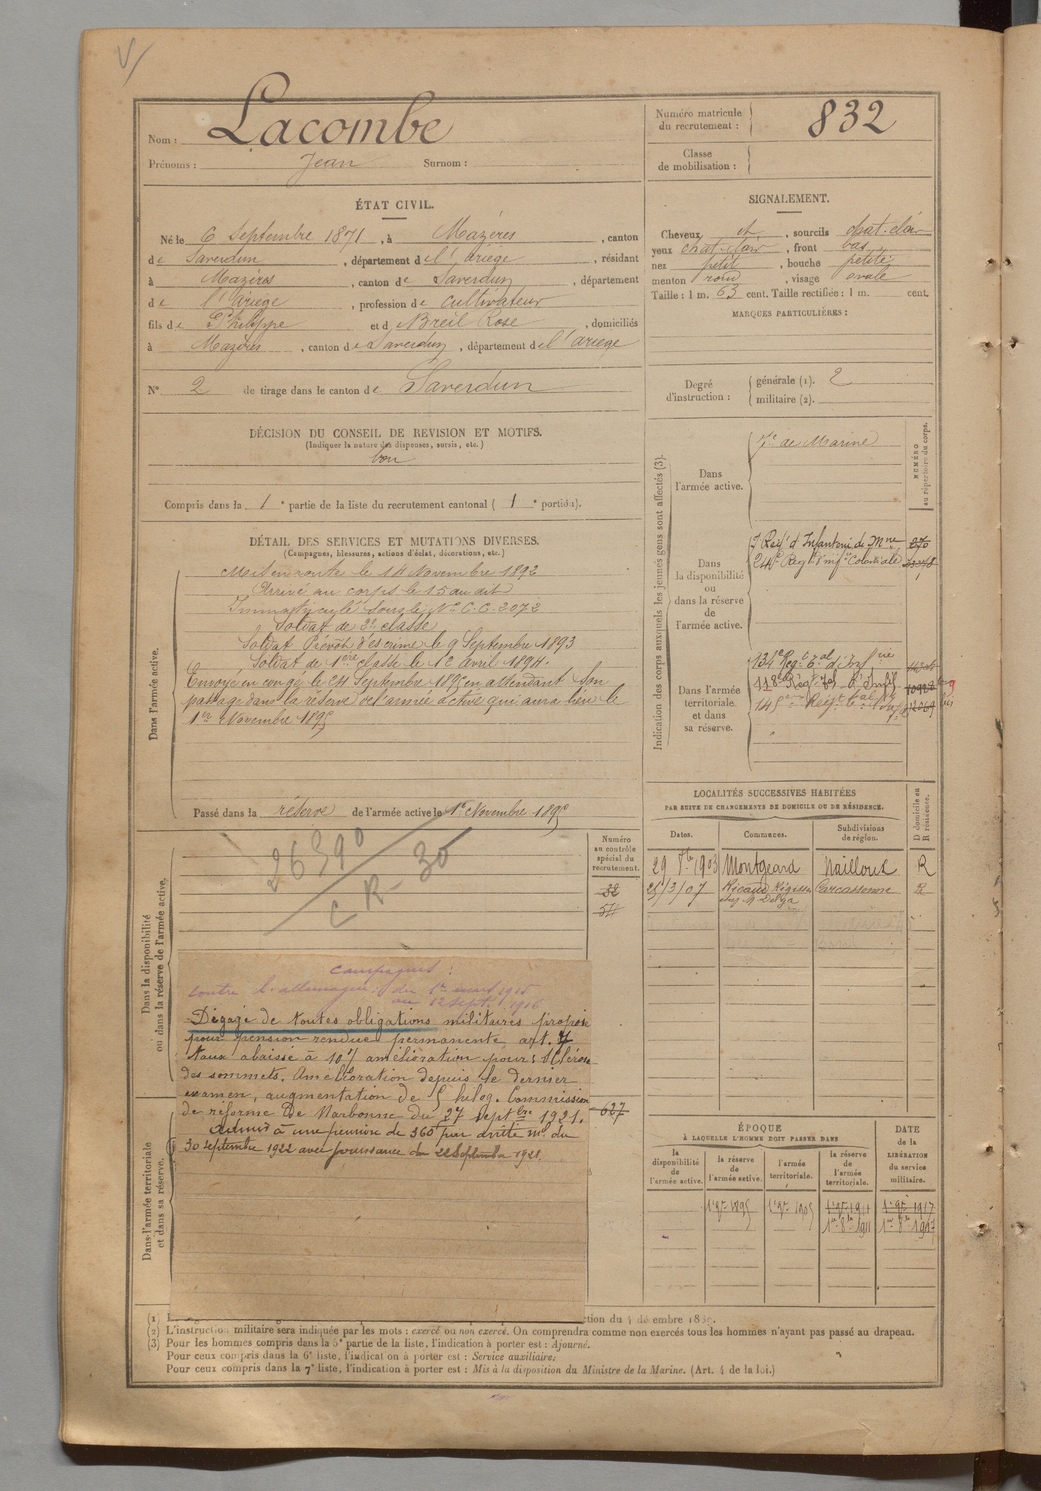 Nom : Lacombe
Prénoms : Jean Surnom :
Numéro matricule du recrutement : 832
Classe de mobilisation :
ÉTAT CIVIL.
Né le 6 Septembre 1871, à Mazères, canton
de Saverdun, département de l'Ariège, résidant
à Mazères, canton de Saverdun, département
de l'Ariège, profession de cultivateur
fils de Philippe et d Breil Rose, domiciliés
à Mazères, canton de Saverdun, département de l'Ariège
N° 2 de tirage dans le canton de Saverdun
SIGNALEMENT.
Cheveux ch, sourcils chat-clair
yeux chat-clair, front bas
nez petit, bouche petite
menton rond, visage ovale
Taille : 1 m. 63 cent. Taille rectifiée : 1 m. cent.
MARQUES PARTICULIÈRES :
Degré d'instruction : générale (1). 2
militaire (2).
DÉCISION DU CONSEIL DE REVISION ET MOTIFS.
(Indiquer la nature des dispenses, sursis, etc.)
bon
Compris dans la 1e partie de la liste du recrutement cantonal (1e portion).
DÉTAIL DES SERVICES ET MUTATIONS DIVERSES.
(Campagnes, blessures, actions d'éclat, décorations, etc.)
Dans l'armée active.
Mis en route le 14 Novembre 1892
Arrivé au corps le 15 au dit
Immatriculé sous le No C.C. 2072
Soldat de 2e classe
Soldat Prévôt d'escrime le 9 Septembre 1893
Soldat de 1ère classe le 12 Avril 1894.
Envoyé en congé le 24 Septembre 1895 en attendant son
passage dans la réserve de l'armée active qui aura lieu le
1er Novembre 1895
Passé dans la réserve de l'armée active le 1er Novembre 1895
Indication des corps auxquels les jeunes gens sont affectés (3).
NUMÉRO au répertoire du corps.
Dans l'armée active.
Ie de Marine
Dans la disponibilité ou dans la réserve de l'armée active.
Regt d'Infanterie de Mne 270
24e Regt d'infie Coloniale
Dans l'armée territoriale et dans sa réserve.
134e Regt tal d'Infie
118e Régt tal d'Infie
145eme Regt tal d'Infie
LOCALITÉS SUCCESSIVES HABITÉES
PAR SUITE DE CHANGEMENTS DE DOMICILE OU DE RÉSIDENCE.
Dates. Communes. Subdivisions de région. D domicile ou R résidence.
29 8bre 1903 Montgeard Nailloux R
25/3/07 Ricaud Carcassonne R
Numéro au contrôle spécial du recrutement.
32
54
627
Dans la disponibilité ou dans la réserve de l'armée active.
26590
CR - 30
Dans l'armée territoriale et dans sa réserve.
Campagnes :
Contre l'allemagne : du 1er mars 1915
au 12 sept. 1916
Dégagé de toutes obligations militaires propos
pour pension rendue permanente art. 7
taux abaissé à 10% amélioration pour : Sclérose
des sommets. Amélioration depuis le dernier
examen, augmentation de 5 kilog. Commission
de réforme de Narbonne du 27 septbre 1921.
Admis à une pension de 360f par arrêté mel du
30 septembre 1922 avec jouissance du 22 septembre 1921.
ÉPOQUE
À LAQUELLE L'HOMME DOIT PASSER DANS
DATE de la LIBÉRATION du service militaire.
la disponibilité de l'armée active. la réserve de l'armée active. l'armée territoriale. la réserve de l'armée territoriale.
1er 9bre 1895 1er 9bre 1905 1er 9bre 1911 1er 9bre 1917
1er 8bre 1911 1er 8bre 1917
(1) ction du 4 décembre 1889.
(2) L'instruction militaire sera indiquée par les mots : exercé ou non exercé. On comprendra comme non exercés tous les hommes n'ayant pas passé au drapeau.
(3) Pour les hommes compris dans la 5e partie de la liste, l'indication à porter est : Ajourné.
Pour ceux compris dans la 6e liste, l'indication à porter est : Service auxiliaire.
Pour ceux compris dans la 7e liste, l'indication à porter est : Mis à la disposition du Ministre de la Marine. (Art. 4 de la loi.)